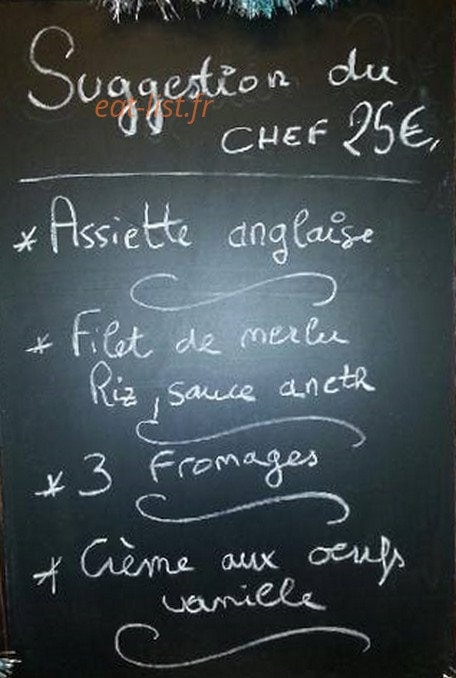 Suggestion du
eat-list.fr
CHEF 25€,
* Assiette anglaise
* Filet de merlu
Riz, sauce aneth
* 3 Fromages
* Crème aux oeufs
vanille